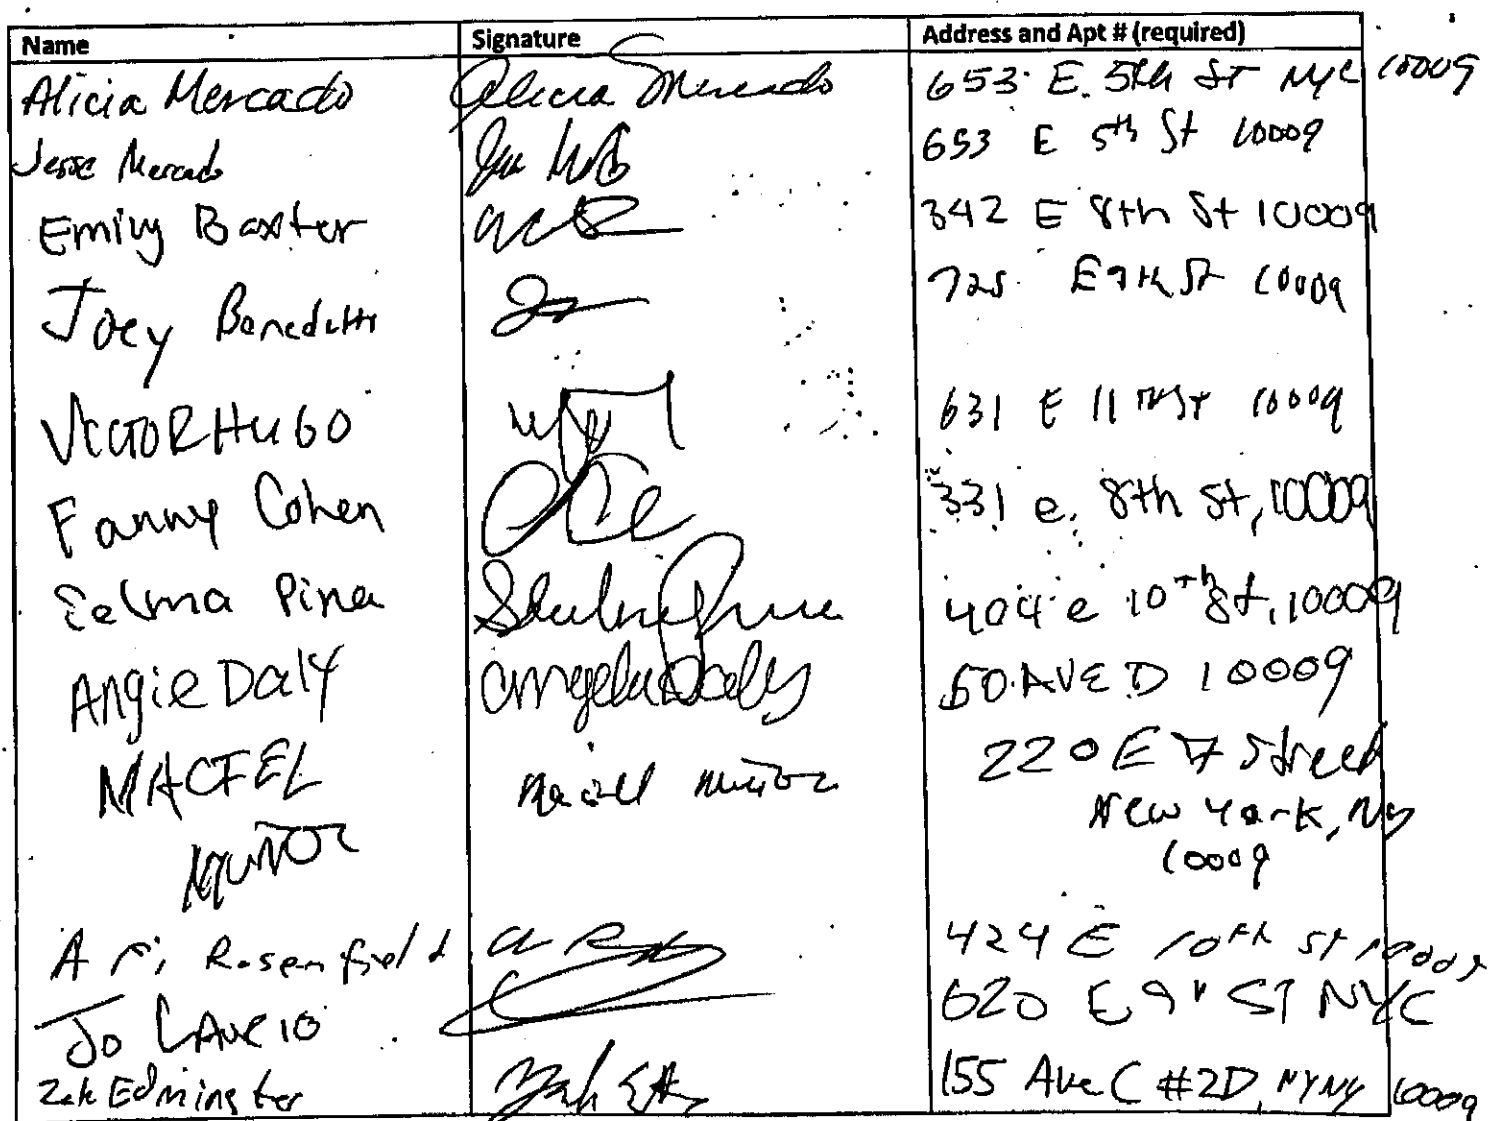 Name Signature Address and Apt # (required)
Alicia Mercado Alicia Mercado 653 E. 5th St NYC 10009
Jesse Mercado 653 E 5th St 10009
Emily Baxter 342 E 8th St 10009
Joey Benedetti 725 E 9th St 10009
VICTOR HUGO 631 E 11th St 10009
Fanny Cohen 331 e. 8th St, 10009
Selma Pina 404 e 10th St, 10009
Angie Daly Angela Daly 50 AVE D 10009
MACIEL Maciel Muñoz 220 E 7 Street
MUÑOZ New York, Ny
10009
Ari Rosenfield 424 E 10th St 10009
Jo 620 E 9 ST NYC
Zak Edmingster 155 Ave C #2D, NY NY 10009